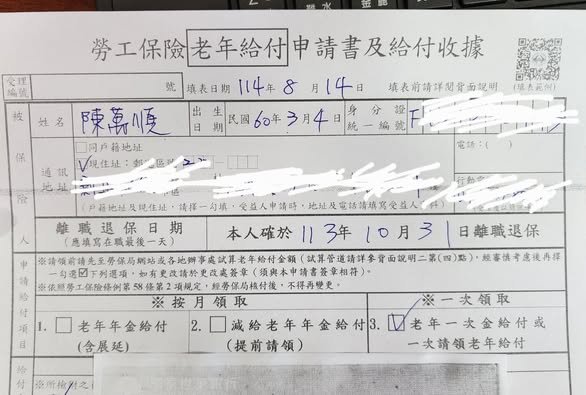 勞工保險老年給付申請書及給付收據
受理編號 號 填表日期 114年8月14日 填表前請詳閱背面說明 (填表範例)
被保險人
姓名 陳萬順 出生日期 民國60年3月4日 身分證統一編號 F
通訊地址 □同戶籍地址 電話:( )
☑現住址:郵遞區號
(戶籍地址及現住址,請擇一勾填,受益人申請時,地址及電話請填寫受益人
離職退保日期 (應填寫在職最後一天) 本人確於113年10月31日離職退保
申請給付項目
※請領前請先至勞保局網站或各地辦事處試算老年給付金額(試算管道請詳參背面說明二第(四)點),經審慎考慮後再擇
一勾選☑下列選項,如有更改請於更改處簽章(須與本申請書簽章相符)。
※依勞工保險條例第58條第2項規定,經勞保局核付後,不得再變更。
※按月領取 ※一次領取
1.□老年年金給付(含展延) 2.□減給老年年金給付(提前請領) 3.☑老年一次金給付或一次請領老年給付
給付
※所檢付之